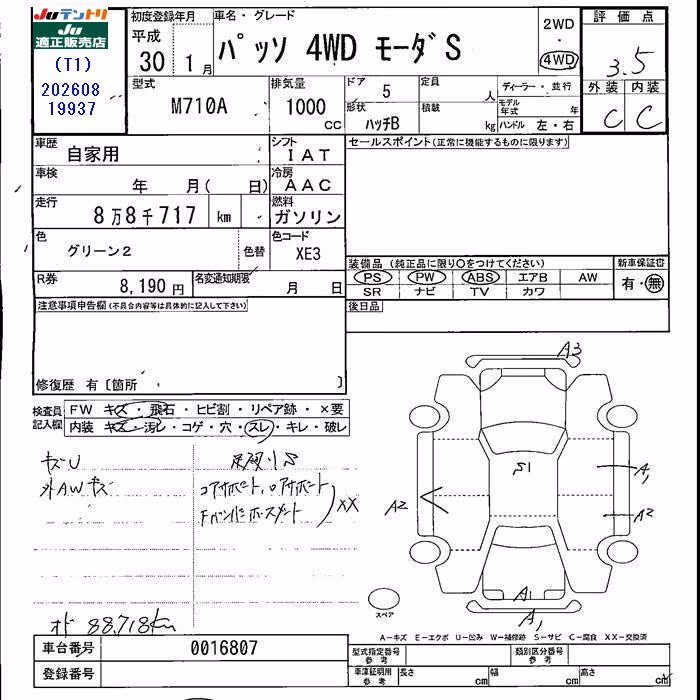 Juテントリ
Ju
適正販売店
(T1)
202608
19937
初度登録年月
平成
30 1 月
車名・グレード
パッソ 4WD モーダS
2WD
・
4WD
評価点
3.5
外装 内装
C C
型式
M710A
排気量
1000
CC
ドア
5
形状
ハッチB
定員
人
積載
kg
ディーラー・並行
モデル年式
年
ハンドル 左・右
車歴
自家用
シフト
IAT
車検
年 月( 日)
冷房
AAC
走行
8万8千717 km
燃料
ガソリン
色
グリーン2
色替
色コード
XE3
R券
8,190 円
名変通知期限
月 日
セールスポイント(正常に機能するものに限ります)
装備品 (純正品に限り○をつけてください)
PS PW ABS エアB AW
SR ナビ TV カワ
新車保証書
有・無
後日品
注意事項申告欄(不具合内容等は具体的に記入して下さい)
修復歴 有〔箇所 〕
検査員
記入欄
FW キズ・飛石・ヒビ割・リペア跡・×要
内装 キズ・汚レ・コゲ・穴・スレ・キレ・破レ
キズU
外AWキズ
コアサポート、ロアサポート
XX
オド 88,718km
A3
S1
A1
A2
A2
A1
A1
スペア
A-キズ E-エクボ U-凹み W-補修跡 S-サビ C-腐食 XX-交換済
車台番号
0016807
登録番号
型式指定番号
参考
類別区分番号
参考
車庫証明用
参考
長さ cm 幅 cm 高さ cm